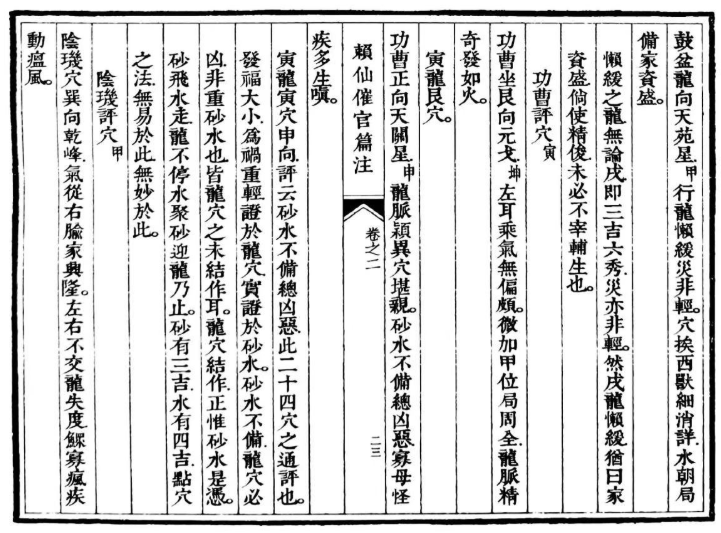 鼓盆龍向天苑星甲行龍懶緩災非輕。穴挨西獸細消詳水朝局
備家資盛。
懶緩之龍無論戌即三吉六秀災亦非輕。然戌龍懶緩猶曰家
資盛倘使精俊未必不宰輔生也。
功曹評穴寅
功曹坐艮向元戈坤左耳乘氣無偏頗。微加甲位局周全龍脈精
奇發如火。
寅龍艮穴。
功曹正向天關星申龍脈穎異穴堪親。砂水不備總凶惡寡母怪
賴仙催官篇注
卷之二
二三
疾多生嗔。
寅龍寅穴申向評云砂水不備總凶惡此二十四穴之通評也。
發福大小為禍重輕證於龍穴實證於砂水。砂水不備龍穴必
凶非重砂水也皆龍穴之未結作耳。龍穴結作正惟砂水是憑。
砂飛水走龍不停水聚砂迎龍乃止。砂有三吉水有四吉點穴
之法無易於此無妙於此。
陰璣評穴甲
陰璣穴巽向乾峰氣從右腧家興隆。左右不交龍失度鰥寡瘋疾
動瘟風。